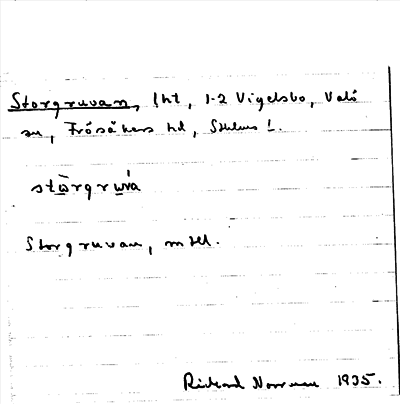 Storgruvan, lht, 1-2 Vigelsbo, Valö
sn, Frösåkers hd, Sthlms l.
stòrgruvà
Storgruvan, mtll.
Rickard Norrman 1935.